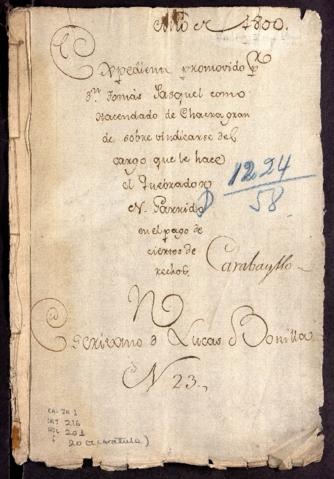 Año de 1800.
Expediente promovido pr
Dn. Tomás Pasquel como
Hacendado de Chacra gran
de sobre vindicarse del
cargo que le hace
el Quebrador
N. Garrido
en el pago de
ciertos de
rechos.
1224
58
Carabayllo
Escrivano D Lucas Bonilla
N 23.
CA-JR 1
201
20 (carátula)